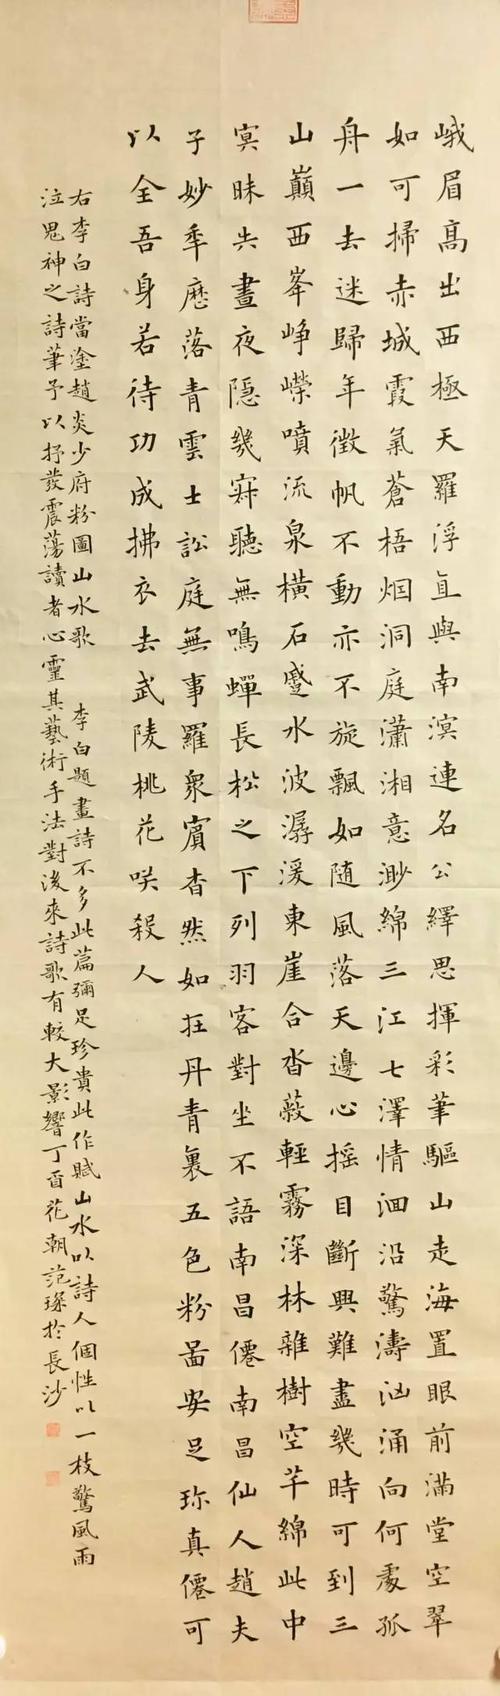 峨眉高出西極天羅浮直與南溟連名公繹思揮彩筆驅山走海置眼前滿堂空翠
如可掃赤城霞氣蒼梧烟洞庭瀟湘意渺綿三江七澤情洄沿驚濤洶涌向何處孤
舟一去迷歸年徵帆不動亦不旋飄如随風落天邊心摇目斷興難盡幾時可到三
山巔西峯崢嶸噴流泉橫石蹙水波潺湲東崖合沓蔽輕霧深林雜樹空芊綿此中
冥昧失晝夜隱幾寂聽無鳴蟬長松之下列羽客對坐不語南昌僊南昌仙人趙夫
子妙年歷落青雲士訟庭無事羅衆賓杳然如在丹青裏五色粉啚安足珎真僊可
以全吾身若待功成拂衣去武陵桃花咲殺人
右李白詩當塗趙炎少府粉圖山水歌 李白題畫詩不多此篇彌足珍貴此作賦山水以詩人個性以一枝驚風雨
泣鬼神之詩筆予以抒發震蕩讀者心靈其藝術手法對後來詩歌有較大影響丁酉花朝范琛於長沙